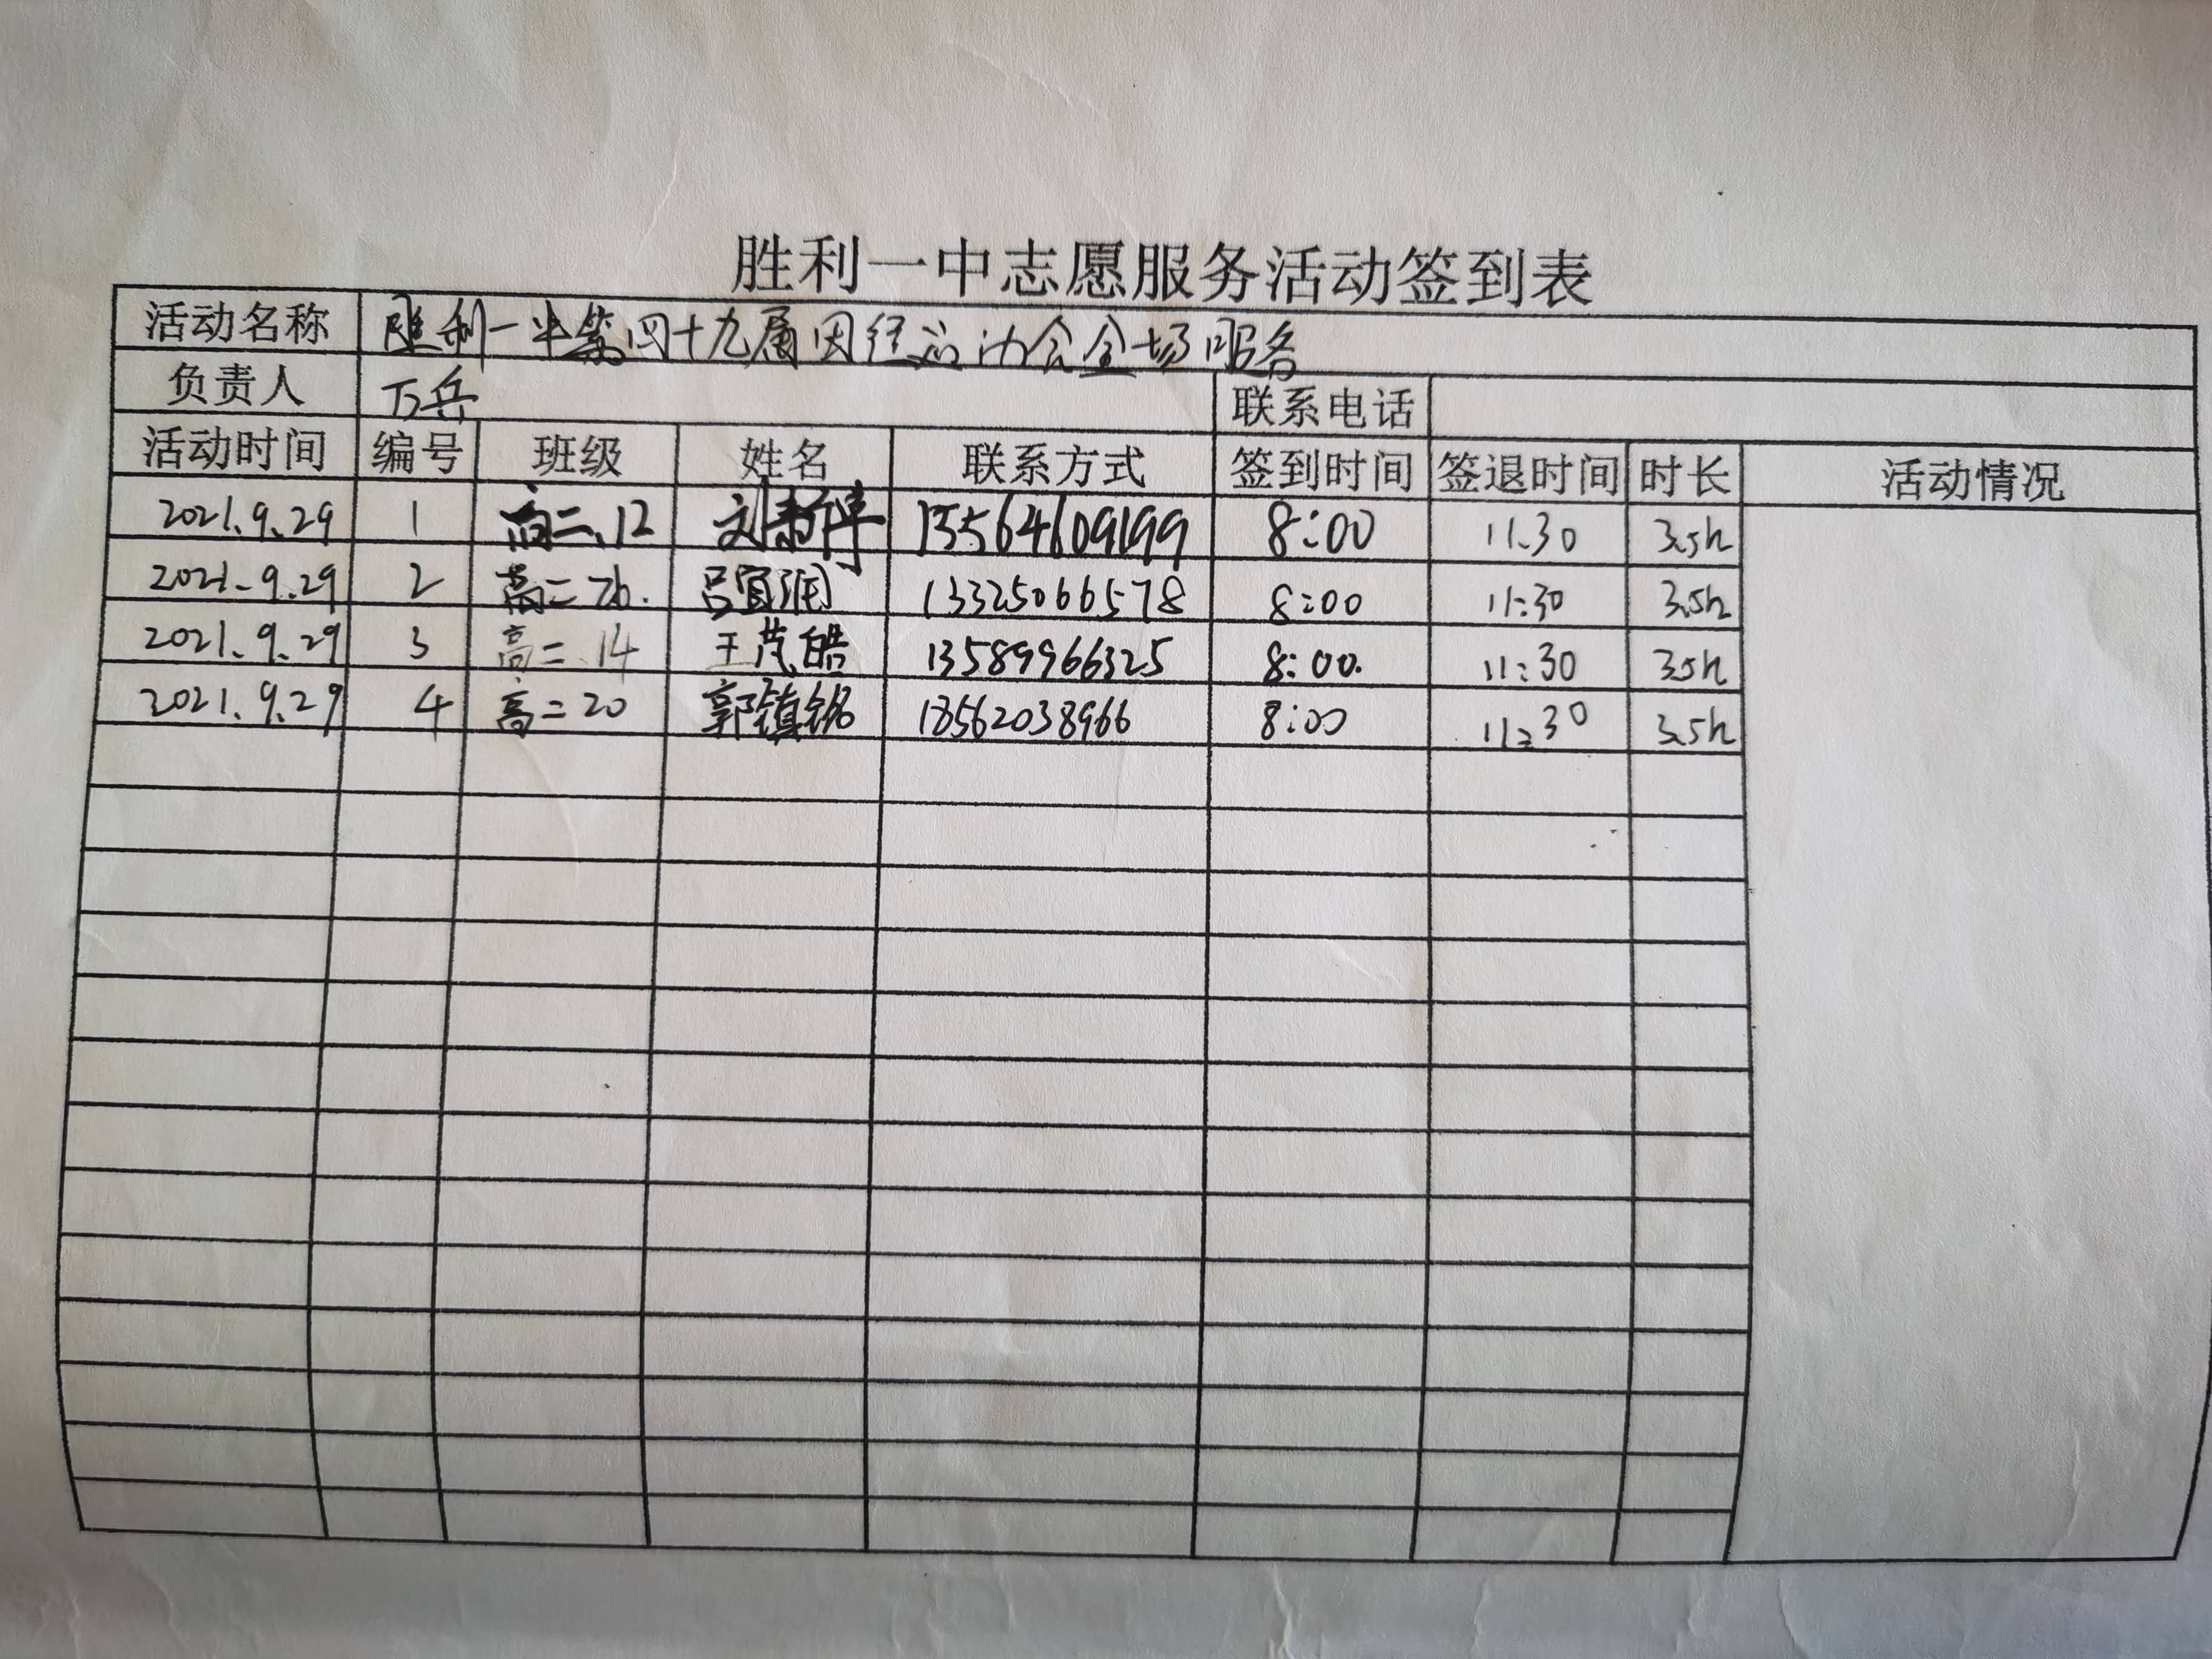 胜利一中志愿服务活动签到表
活动名称 胜利一中第四十九届田径运动会全场服务
负责人 万兵 联系电话
活动时间 编号 班级 姓名 联系方式 签到时间 签退时间 时长 活动情况
2021.9.29 1 高二.12 刘 13564609199 8:00 11.30 3.5h
2021.9.29 2 高二 26. 吕宜润 13325066578 8:00 11:30 3.5h
2021.9.29 3 高二.14 王茂皓 13589966325 8:00. 11:30 3.5h
2021.9.29 4 高二20 郭镇铭 18562038966 8:00 11:30 3.5h